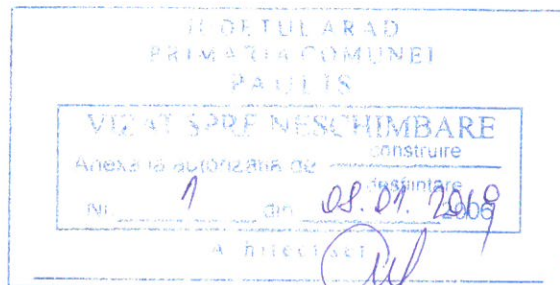 JUDETUL ARAD
PRIMARIA COMUNEI
PAULIS
VIZAT SPRE NESCHIMBARE
Anexa la autorizatia de construire
desfiintare
Nr. 1 din 08.01.2019 2006
Arhitect sef